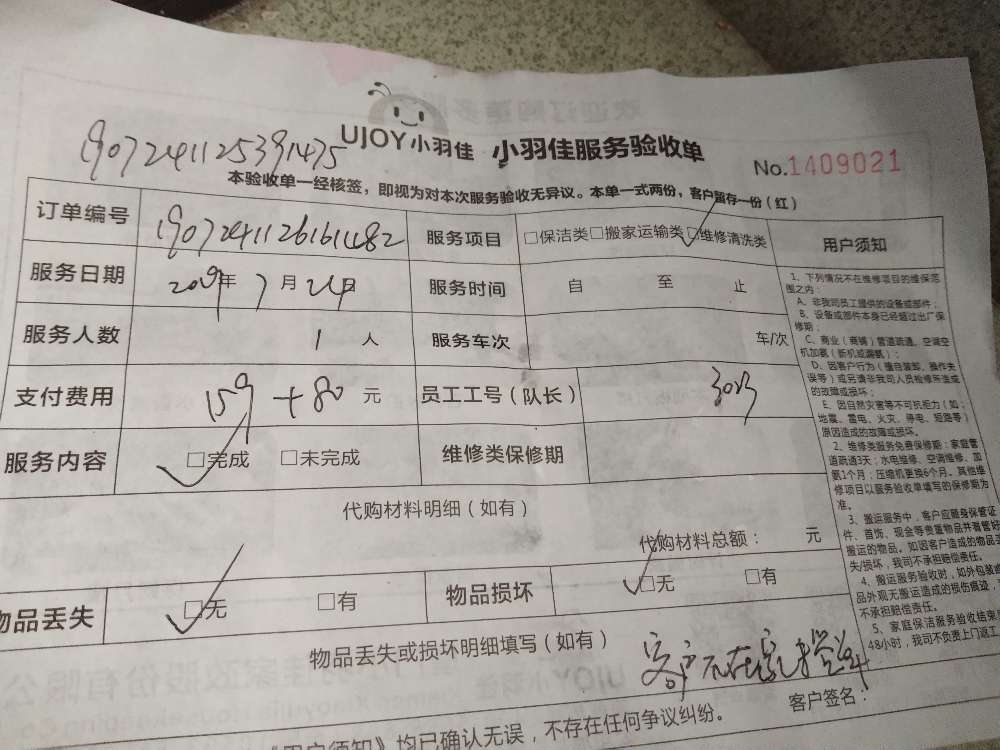 UJOY小羽佳 小羽佳服务验收单
1907241125391475
No.1409021
本验收单一经核签，即视为对本次服务验收无异议。本单一式两份，客户留存一份（红）
订单编号 1907241126161482 服务项目 □保洁类□搬家运输类□维修清洗类
服务日期 2019年7月24日 服务时间 自 至 止
服务人数 1 人 服务车次 车/次
支付费用 159+80 元 员工工号（队长）
服务内容 □完成 □未完成 维修类保修期
代购材料明细（如有）
代购材料总额： 元
物品丢失 □无 □有 物品损坏 □无 □有
物品丢失或损坏明细填写（如有）
客户不在家未签单
客户签名：
《用户须知》均已确认无误，不存在任何争议纠纷。
用户须知
1、下列情况不在维修项目的维保范
围之内：
A、非我司员工提供的设备或部件；
B、设备或部件本身已经超过出厂保
修期；
C、商业（商铺）管道疏通、空调空
机加氨（新机或漏氨）；
D、因客户行为（擅自装卸、操作失
误等）或另请非我司人员检修所造成
的故障或损坏；
E、因自然灾害等不可抗拒力（如：
地震、雷电、火灾、停电、短路等）
原因造成的故障或损坏。
2、维修类服务免费保修期：家庭管
道疏通3天；水电维修、空调维修、加
氨1个月；压缩机更换6个月。其他维
修项目以服务验收单填写的保修期为
准。
3、搬运服务中，客户应随身保管证
件、首饰、现金等贵重物品并看管好
搬运的物品。如因客户造成的物品丢
失/损坏，我司不承担赔偿责任。
4、搬运服务验收时，如外包装或
品外观无搬运造成的损伤痕迹，
不承担赔偿责任。
5、家庭保洁服务验收结束
48小时，我司不负责上门返工